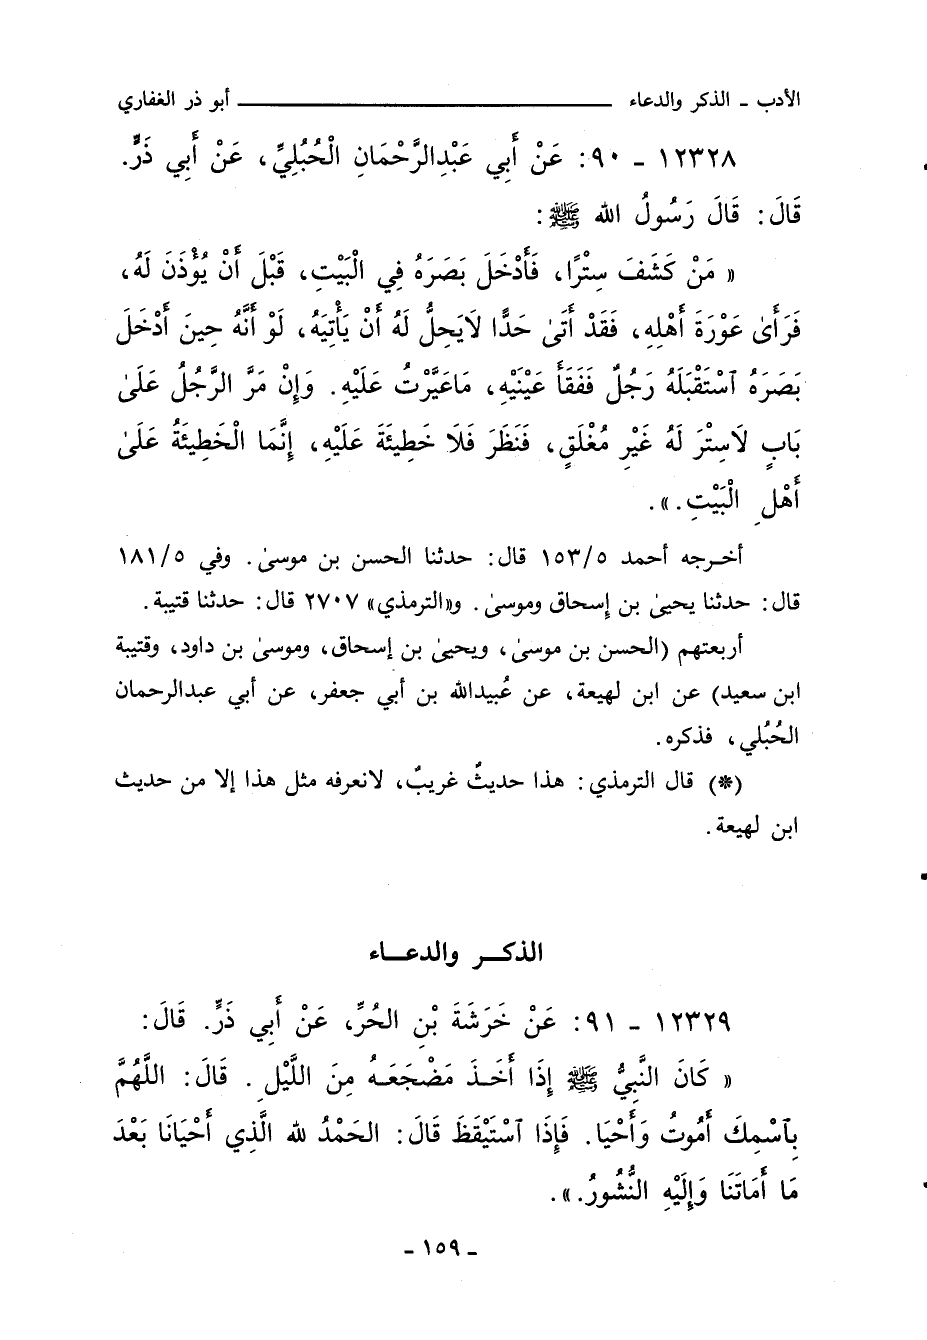 الأدب - الذكر والدعاء ــــــــــــــــــــ أبو ذر الغفاري
١٢٣٢٨ - ٩٠: عَنْ أَبِي عَبْدِالرَّحْمَانِ الْحُبُلِيِّ، عَنْ أَبِي ذَرٍّ.
قَالَ: قَالَ رَسُولُ اللهِ ﷺ:
« مَنْ كَشَفَ سِتْرًا، فَأَدْخَلَ بَصَرَهُ فِي الْبَيْتِ، قَبْلَ أَنْ يُؤْذَنَ لَهُ،
فَرَأَىٰ عَوْرَةَ أَهْلِهِ، فَقَدْ أَتَىٰ حَدًّا لَايَحِلُّ لَهُ أَنْ يَأْتِيَهُ، لَوْ أَنَّهُ حِينَ أَدْخَلَ
بَصَرَهُ ٱسْتَقْبَلَهُ رَجُلٌ فَفَقَأَ عَيْنَيْهِ، مَاعَيَّرْتُ عَلَيْهِ. وَإِنْ مَرَّ الرَّجُلُ عَلَىٰ
بَابٍ لَاسِتْرَ لَهُ غَيْرِ مُغْلَقٍ، فَنَظَرَ فَلَا خَطِيئَةَ عَلَيْهِ، إِنَّمَا الْخَطِيئَةُ عَلَىٰ
أَهْلِ الْبَيْتِ.».
أخرجه أحمد ١٥٣/٥ قال: حدثنا الحسن بن موسىٰ. وفي ١٨١/٥
قال: حدثنا يحيىٰ بن إسحاق وموسىٰ. و«الترمذي» ٢٧٠٧ قال: حدثنا قتيبة.
أربعتهم (الحسن بن موسىٰ، ويحيىٰ بن إسحاق، وموسىٰ بن داود، وقتيبة
ابن سعيد) عن ابن لهيعة، عن عُبيدالله بن أبي جعفر، عن أبي عبدالرحمان
الحُبُلي، فذكره.
(*) قال الترمذي: هذا حديثٌ غريبٌ، لانعرفه مثل هذا إلا من حديث
ابن لهيعة.
الذكــر والدعــاء
١٢٣٢٩ - ٩١: عَنْ خَرَشَةَ بْنِ الحُرِّ، عَنْ أَبِي ذَرٍّ. قَالَ:
« كَانَ النَّبِيُّ ﷺ إِذَا أَخَذَ مَضْجَعَهُ مِنَ اللَّيْلِ. قَالَ: اللَّهُمَّ
بِٱسْمِكَ أَمُوتُ وَأَحْيَا. فَإِذَا ٱسْتَيْقَظَ قَالَ: الحَمْدُ للهِ الَّذِي أَحْيَانَا بَعْدَ
مَا أَمَاتَنَا وَإِلَيْهِ النُّشُورُ.».
- ١٥٩ -